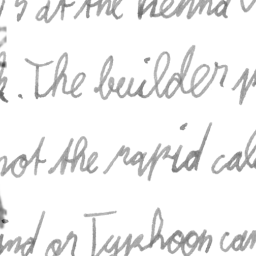 at the henna
. The builder
not the rapid cal
and or Typhoon can